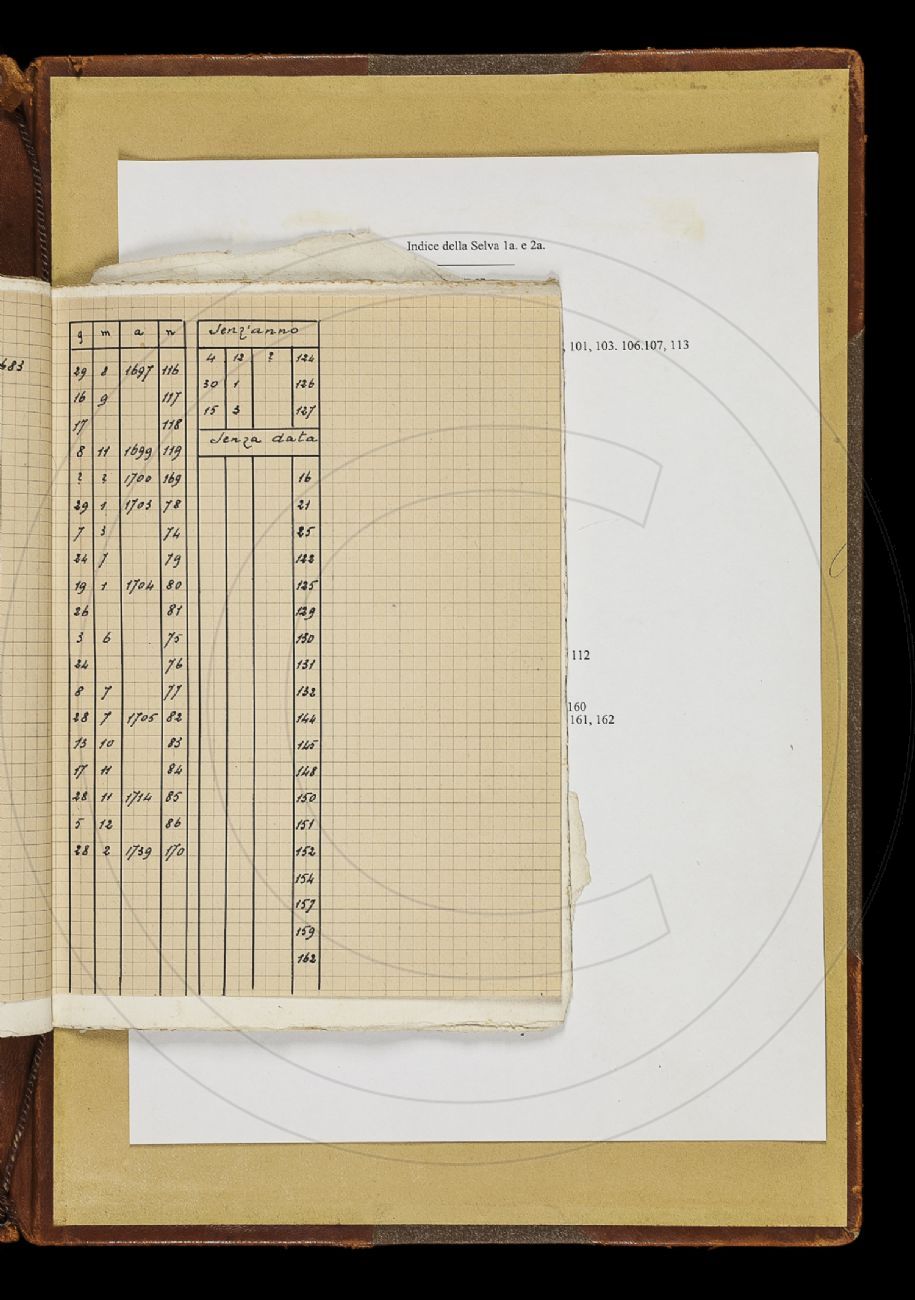 Indice della Selva 1a. e 2a.
, 101, 103. 106.107, 113
112
160
161, 162
683
g m a n
29 8 1697 116
16 9 117
17 118
8 11 1699 119
? ? 1700 169
29 1 1703 78
7 3 74
24 7 79
19 1 1704 80
26 81
3 6 75
24 76
8 7 77
28 7 1705 82
13 10 83
17 11 84
28 11 1714 85
5 12 86
28 2 1739 170
Senz'anno
4 12 ? 124
30 1 126
15 3 127
Senza data
16
21
25
122
125
129
130
131
132
144
145
148
150
151
152
154
157
159
162